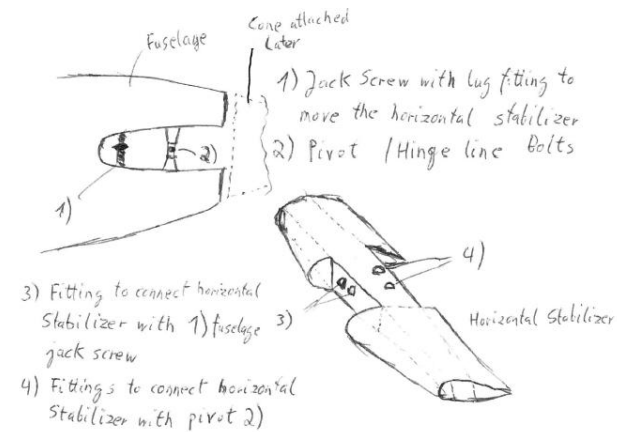 Fuselage
Cone attached
Later
1) Jack Screw with lug fitting to
move the horizontal stabilizer
2) Pivot / Hinge line Bolts
2)
1)
4)
3) Fitting to connect horizontal
Stabilizer with 1) fuselage
jack screw
3)
Horizontal Stabilizer
4) Fittings to connect horizontal
Stabilizer with pivot 2)